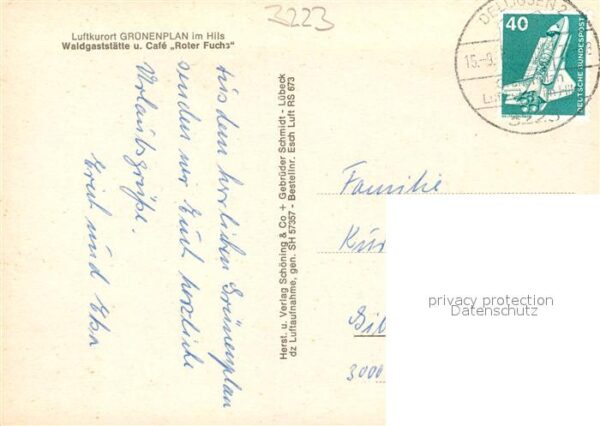 3223
Luftkurort GRÜNENPLAN im Hils
Waldgaststätte u. Café „Roter Fuchs"
Aus dem herrlichen Grünenplan
senden wir Euch herzliche
Urlaubsgrüße.
Erich und Elsa
Herst. u. Verlag Schöning & Co + Gebrüder Schmidt - Lübeck
dz Luftaufnahme, gen. SH 57357 - Bestellnr. Esch Luft RS 673
DELLIGSEN 2
15.-9.
3223
40
DEUTSCHE BUNDESPOST
Familie
3000
privacy protection
Datenschutz